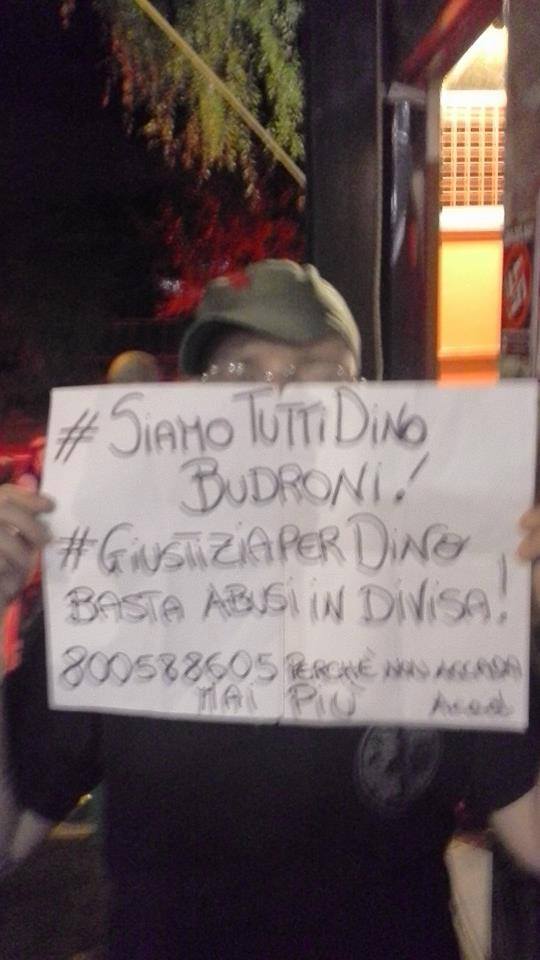 # SIAMO TUTTI DINO
BUDRONI!
# GIUSTIZIA PER DINO
BASTA ABUSI IN DIVISA!
800588605 PERCHÈ NON ACCADA
MAI PIÙ